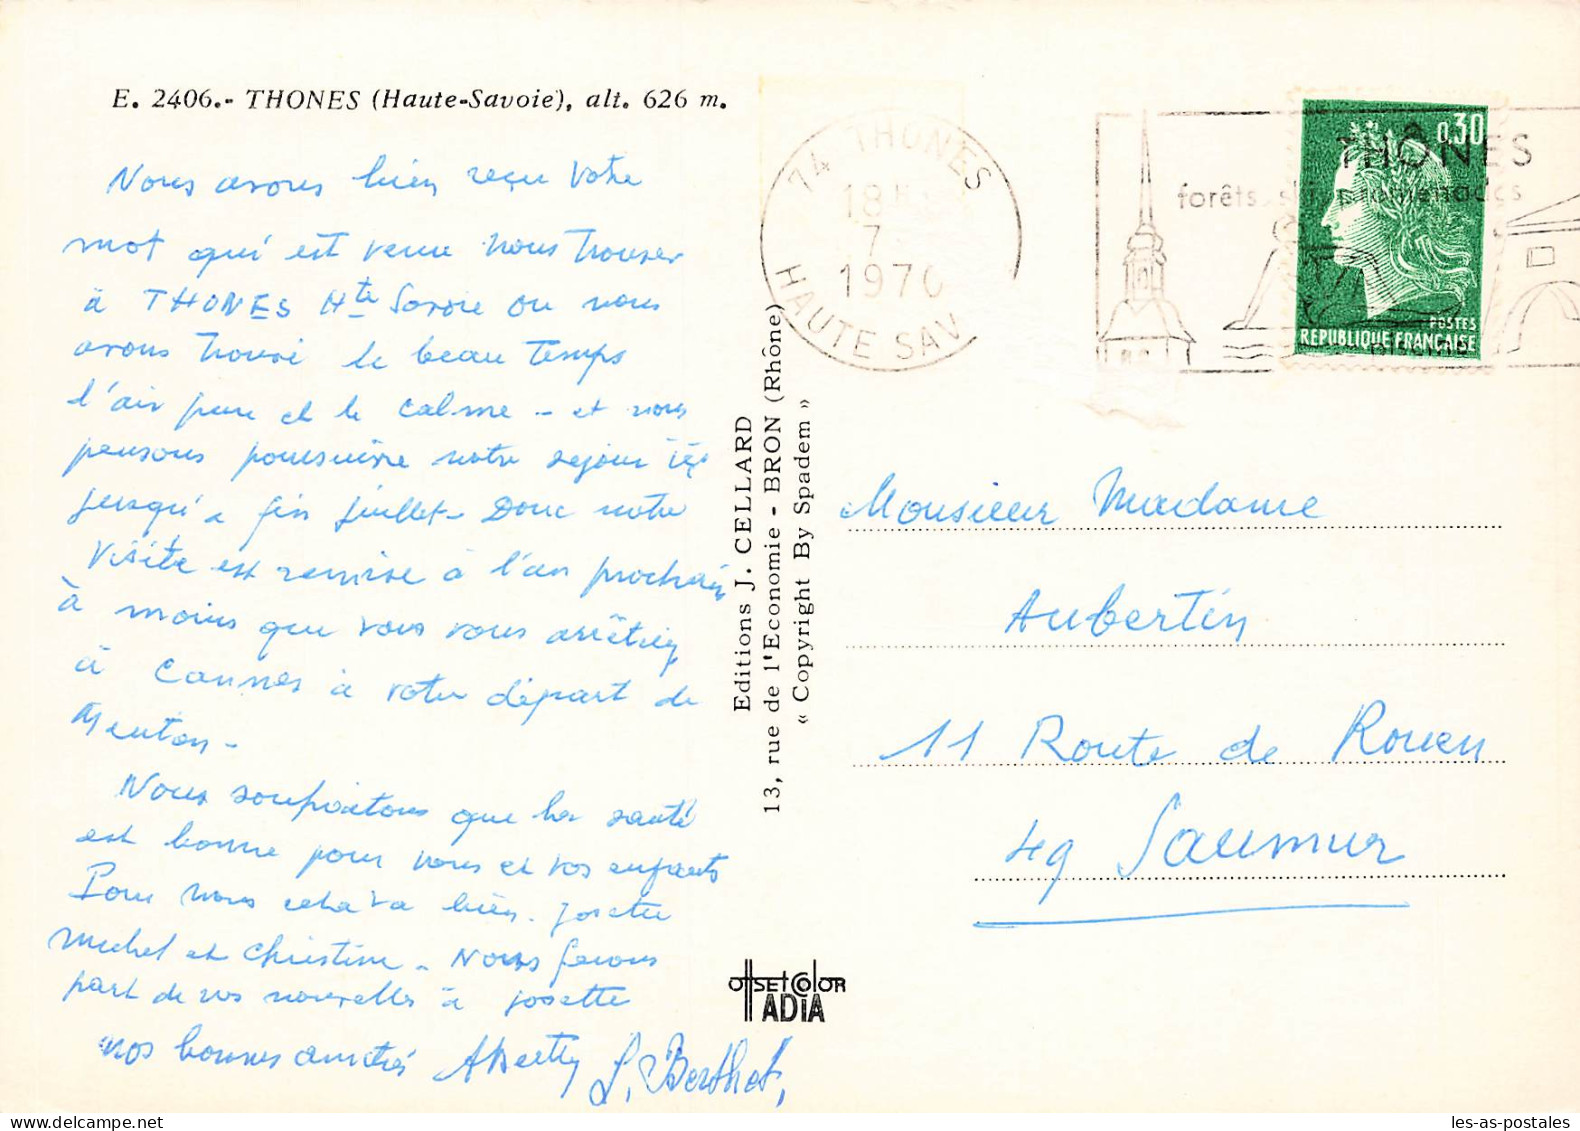 E. 2406.- THONES (Haute-Savoie), alt. 626 m.
Nous avons bien reçu votre
mot qui est venu nous trouver
à THONES Hte Savoie ou nous
avons trouvé le beau temps
l'air pure et le calme - et nous
pensons poursuivre notre sejour ici
jusqu'a fin juillet - Donc notre
visite est remise à l'an prochain
à moins que vous vous arrêtiez
à Cannes à votre départ de
Menton -
Nous souhaitons que la santé
est bonne pour vous et vos enfants
Pour nous cela va bien. Josette
Michel et Christine - Nous ferons
part de vos nouvelles à Josette
nos bonnes amitiés
L. Berthet,
Editions J. CELLARD
13, rue de l'Economie - BRON (Rhône)
« Copyright By Spadem »
OFFSET COLOR
ADIA
74 THONES
18H
7
1970
HAUTE SAV
THÔNES
forêts ski promenades
0,30
POSTES
REPUBLIQUE FRANÇAISE
Monsieur Madame
Aubertin
11 Route de Rouen
49 Saumur
les-as-postales